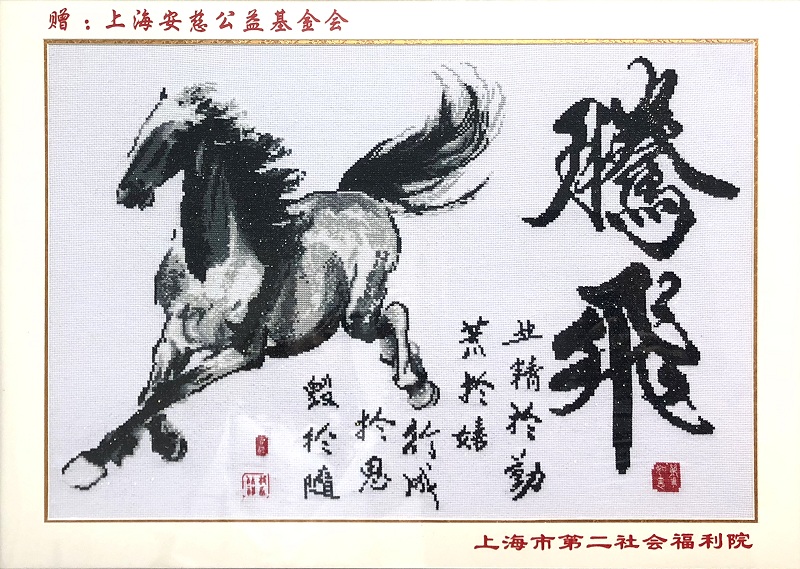 赠：上海安慈公益基金会
騰飛
业精於勤
荒於嬉
行成
於思
毀於隨
上海市第二社会福利院